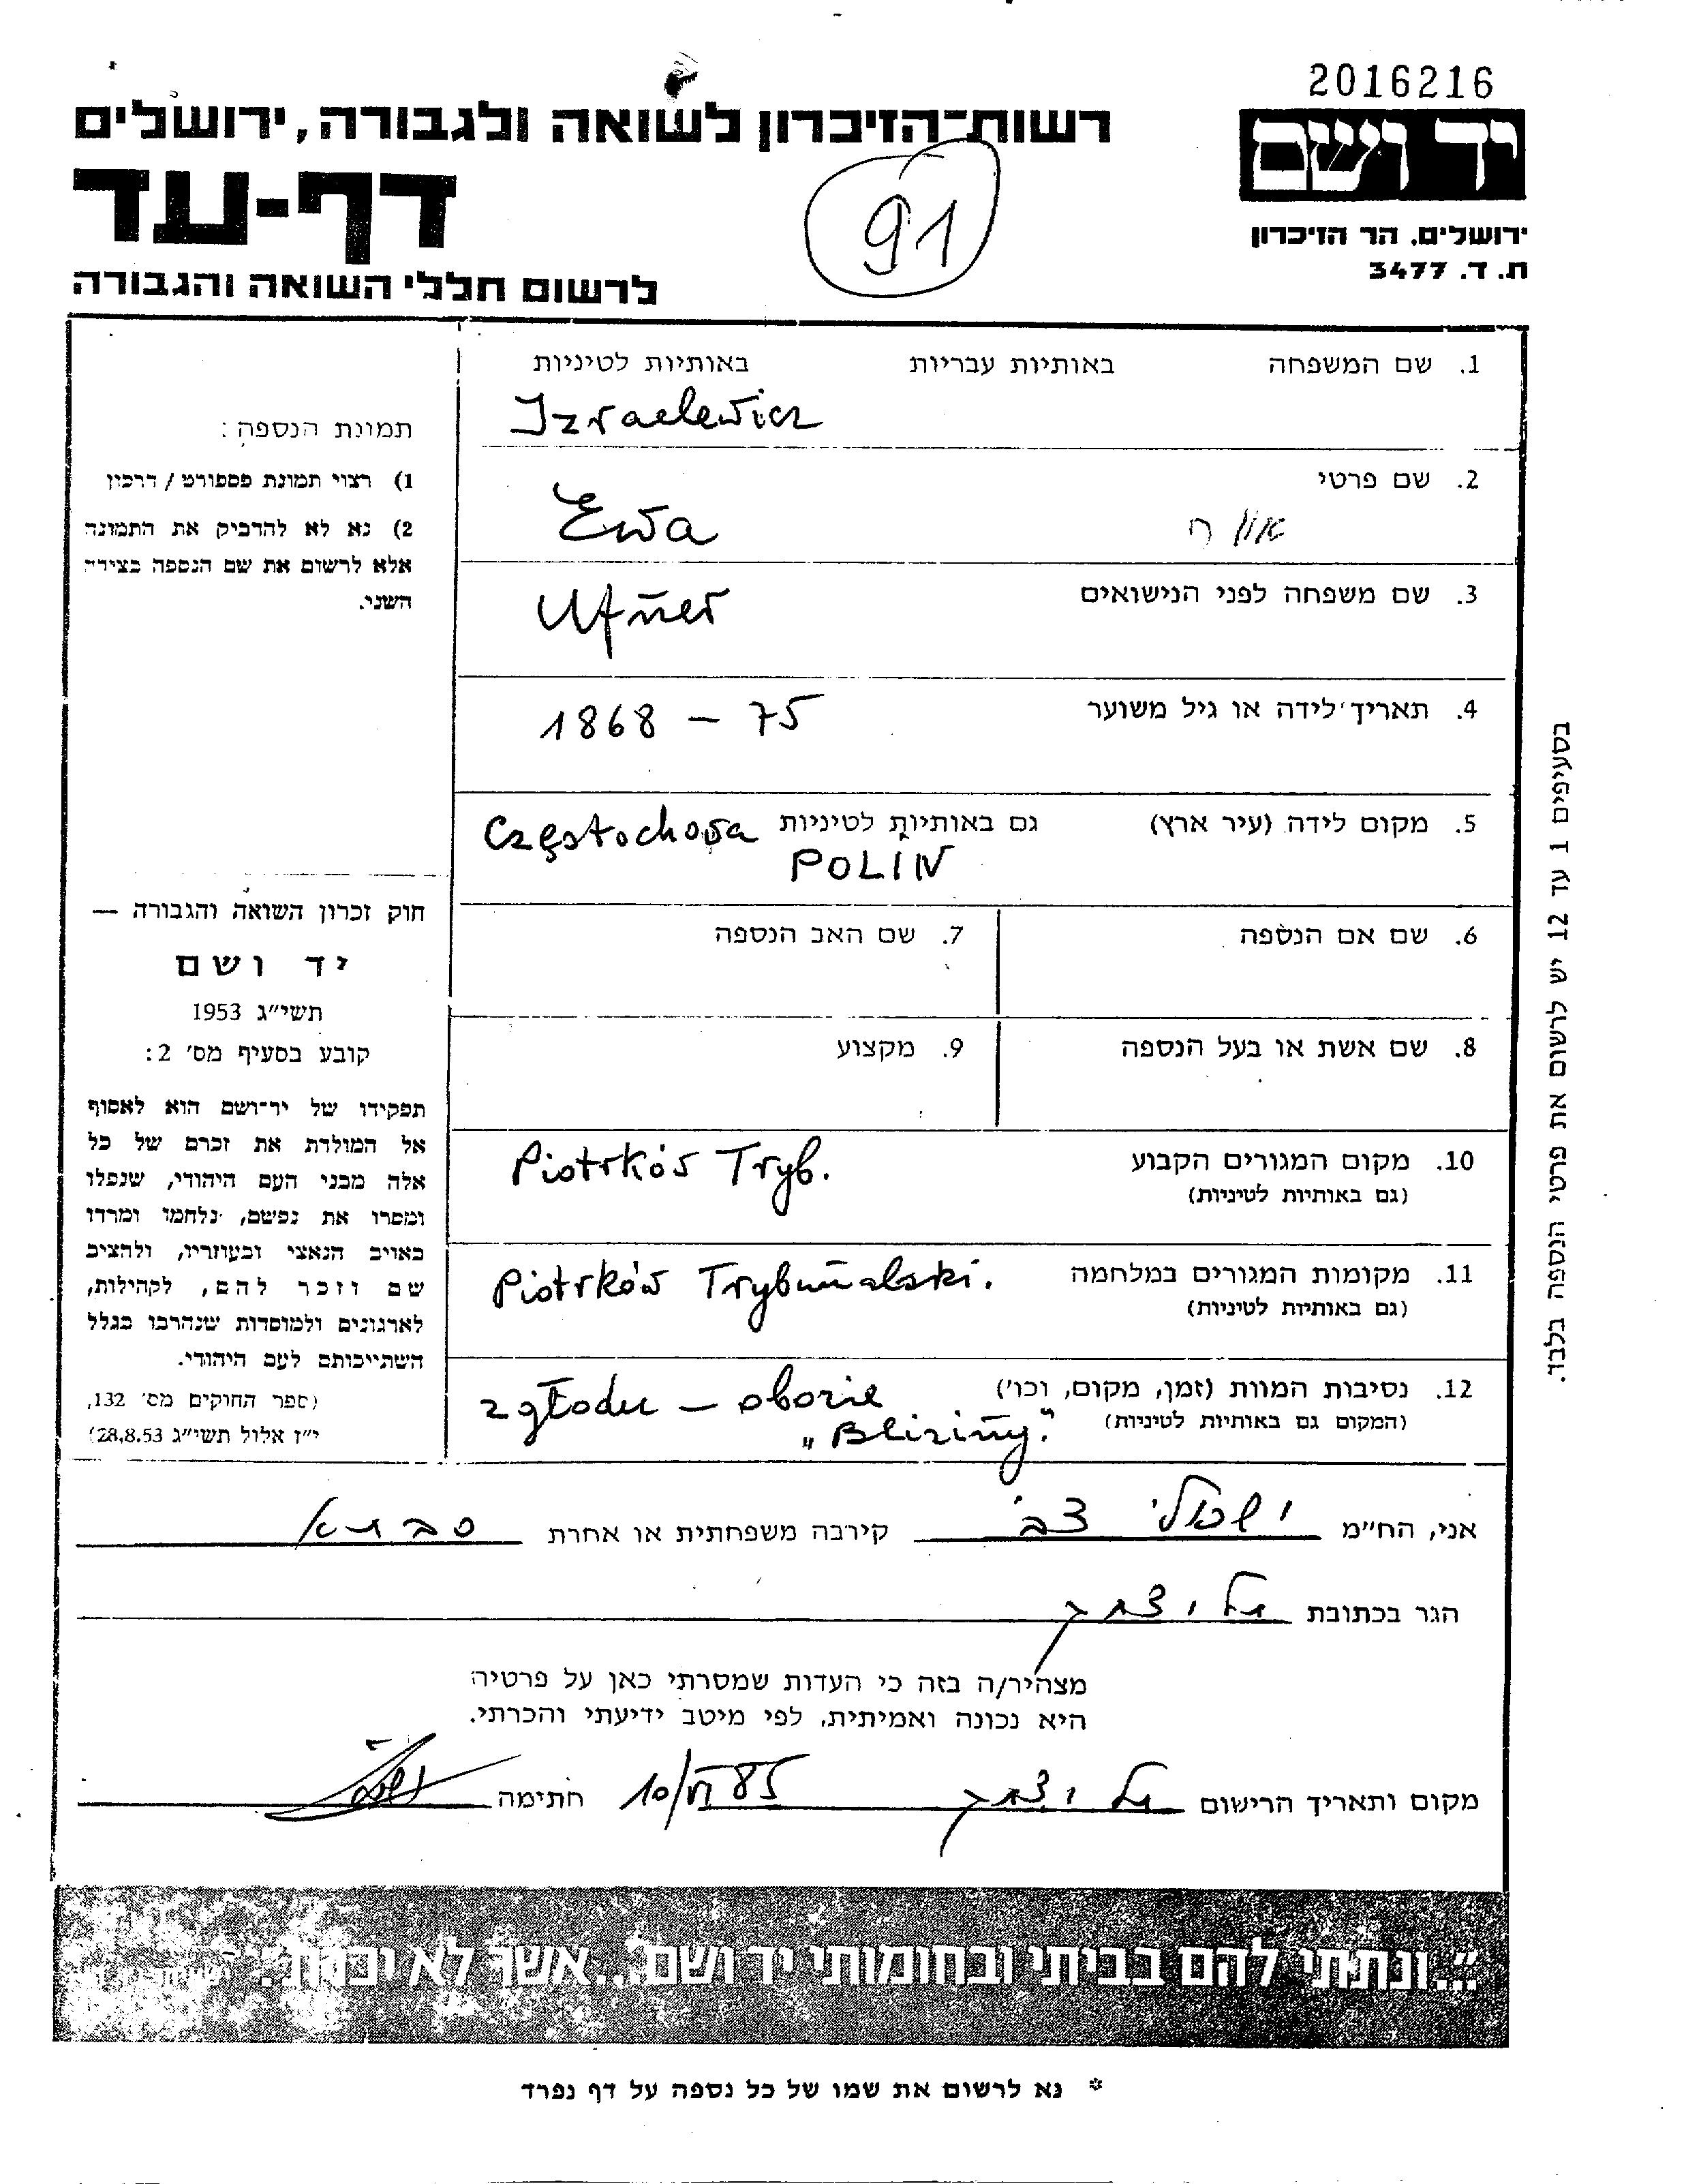 2016216
יד ושם
ירושלים. הר הזיכרון
ת. ד. 3477
רשות-הזיכרון לשואה ולגבורה, ירושלים
דף-עד
לרשום חללי השואה והגבורה
91
1. שם המשפחה באותיות עבריות באותיות לטיניות
Izraelewicz
2. שם פרטי
Ewa
3. שם משפחה לפני הנישואים
Ufner
4. תאריך לידה או גיל משוער
1868 – 75
5. מקום לידה (עיר ארץ) גם באותיות לטיניות Częstochowa
POLIN
6. שם אם הנספה
7. שם האב הנספה
8. שם אשת או בעל הנספה
9. מקצוע
10. מקום המגורים הקבוע Piotrków Tryb.
(גם באותיות לטיניות)
11. מקומות המגורים במלחמה Piotrków Trybunalski.
(גם באותיות לטיניות)
12. נסיבות המוות (זמן, מקום, וכו') z głodu – obozie
(המקום גם באותיות לטיניות) „Bliziny."
תמונת הנספה:
1) רצוי תמונת פספורט / דרכון
2) נא לא להדביק את התמונה
אלא לרשום את שם הנספה בצידה
השני.
חוק זכרון השואה והגבורה —
יד ושם
תשי"ג 1953
קובע בסעיף מס' 2:
תפקידו של יד-ושם הוא לאסוף
אל המולדת את זכרם של כל
אלה מבני העם היהודי, שנפלו
ומסרו את נפשם, נלחמו ומרדו
באויב הנאצי ובעוזריו, ולהציב
שם וזכר להם, לקהילות,
לארגונים ולמוסדות שנהרבו בגלל
השתייכותם לעם היהודי.
(ספר החוקים מס' 132,
י"ז אלול תשי"ג 28.8.53)
בסעיפים 1 עד 12 יש לרשום את פרטי הנספה בלבד.
אני, הח"מ ישראלי צבי קירבה משפחתית או אחרת סבתא
הגר בכתובת תל יצחק
מצהיר/ה בזה כי העדות שמסרתי כאן על פרטיה
היא נכונה ואמיתית, לפי מיטב ידיעתי והכרתי.
מקום ותאריך הרישום תל יצחק 10/VI 85 חתימה
"...ונתתי להם בביתי ובחומותי יד ושם...אשר לא יכרת".
* נא לרשום את שמו של כל נספה על דף נפרד